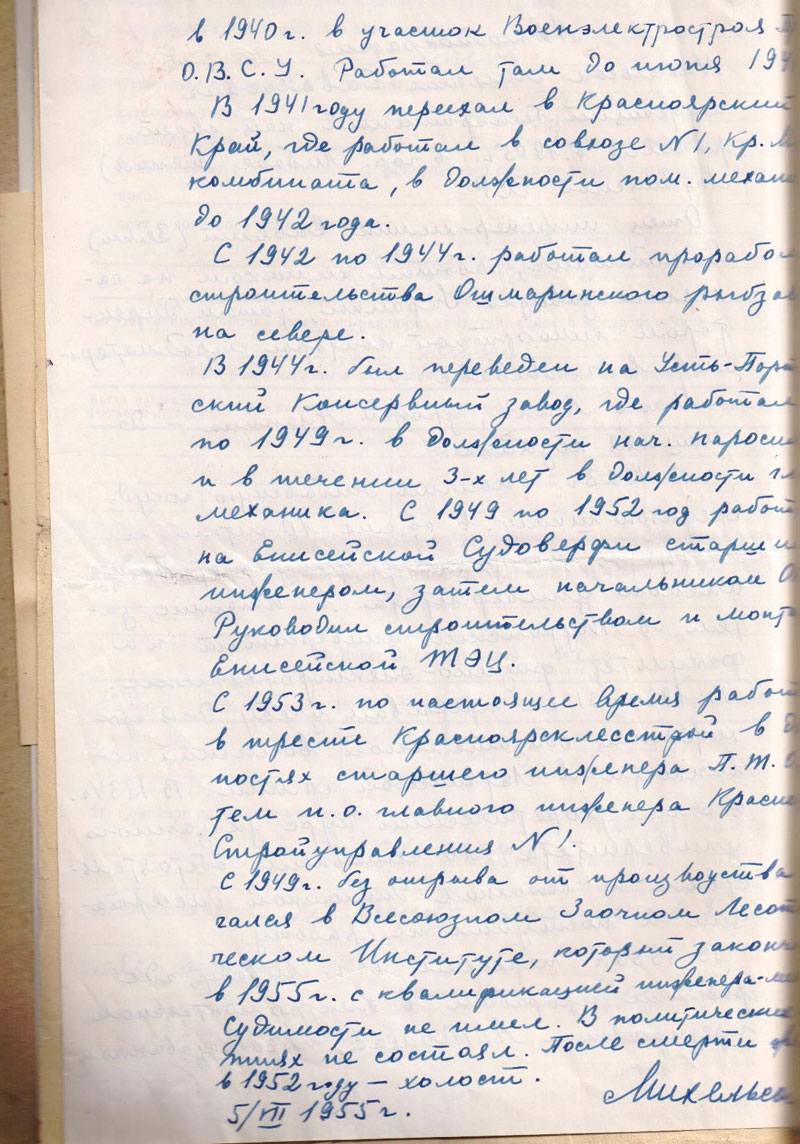 в 1940г. в участок Военэлектростроя
О.В.С.У. Работал там до июня 194
В 1941году переехал в Красноярский
Край, где работал в совхозе N1, Кр.
комбината, в должности пом. механи
до 1942 года.
С 1942 по 1944г. работал прорабом
строительства Ошмаринского рыбза
на севере.
В 1944г. был переведен на Усть-Порт
ский Консервный завод, где работал
по 1949г. в должности нач. пароси
и в течении 3-х лет в должности гл
механика. С 1949 по 1952 год работ
на Енисейской Судоверфи старши
инженером, затем начальником О
Руководил строительством и монт
Енисейской ТЭЦ.
С 1953г. по настоящее время работ
в тресте Красноярсклесстрой в д
ностях старшего инженера П.Т.О
тем и.о. главного инженера Красно
Стройуправления N1.
С 1949г. без отрыва от производства
чался в Всесоюзном Заочном Лесот
ческом Институте, который законч
в 1955г. с квалификацией инженера-ме
Судимости не имел. В политических
тиях не состоял. После смерти
в 1952 году – холост.
5/VII 1955г.
Михельс